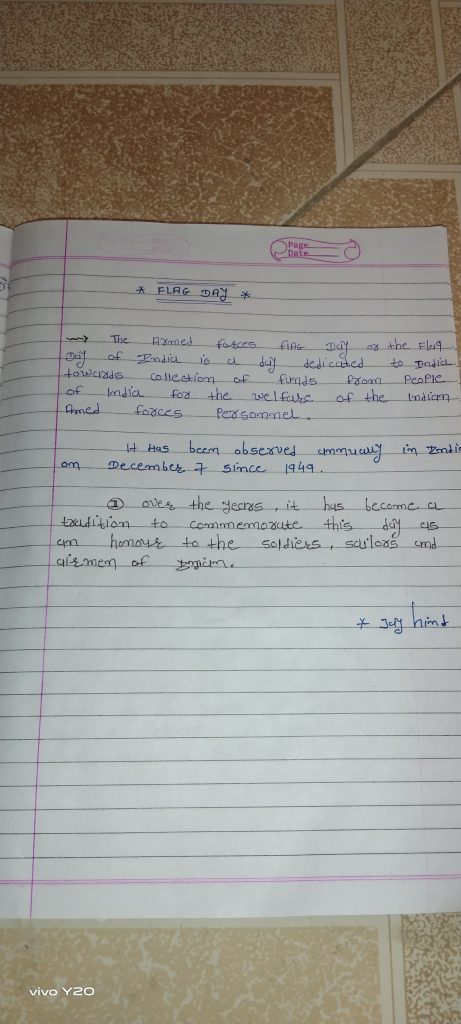 Page
Date
* FLAG DAY *
The Armed forces flAG Day or the Flag
Day of India is a day dedicated to India
towards collection of funds from People
of India for the welfare of the Indian
Amed forces Personnel.
It Has been observed annually in India
on December 7 since 1949.
① over the years, it has become a
tradition to commemorate this day as
an honour to the soldiers, sailors and
airmen of
* Jay hind
vivo Y20